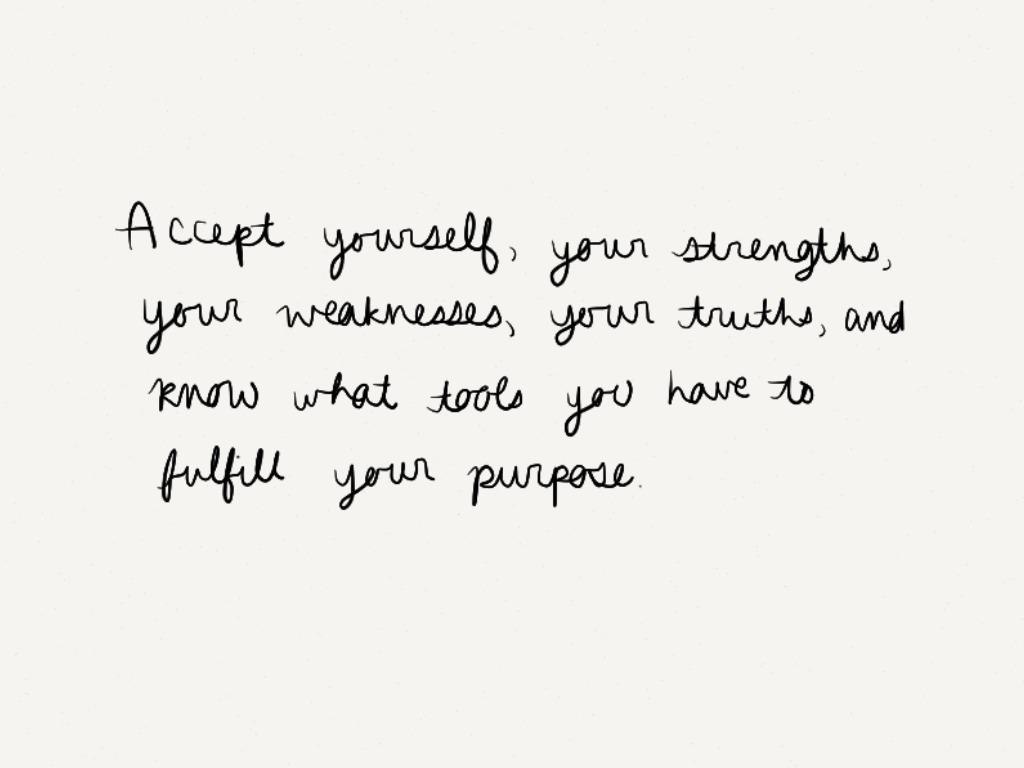 Accept yourself, your strengths,
your weaknesses, your truths, and
know what tools you have to
fulfill your purpose.